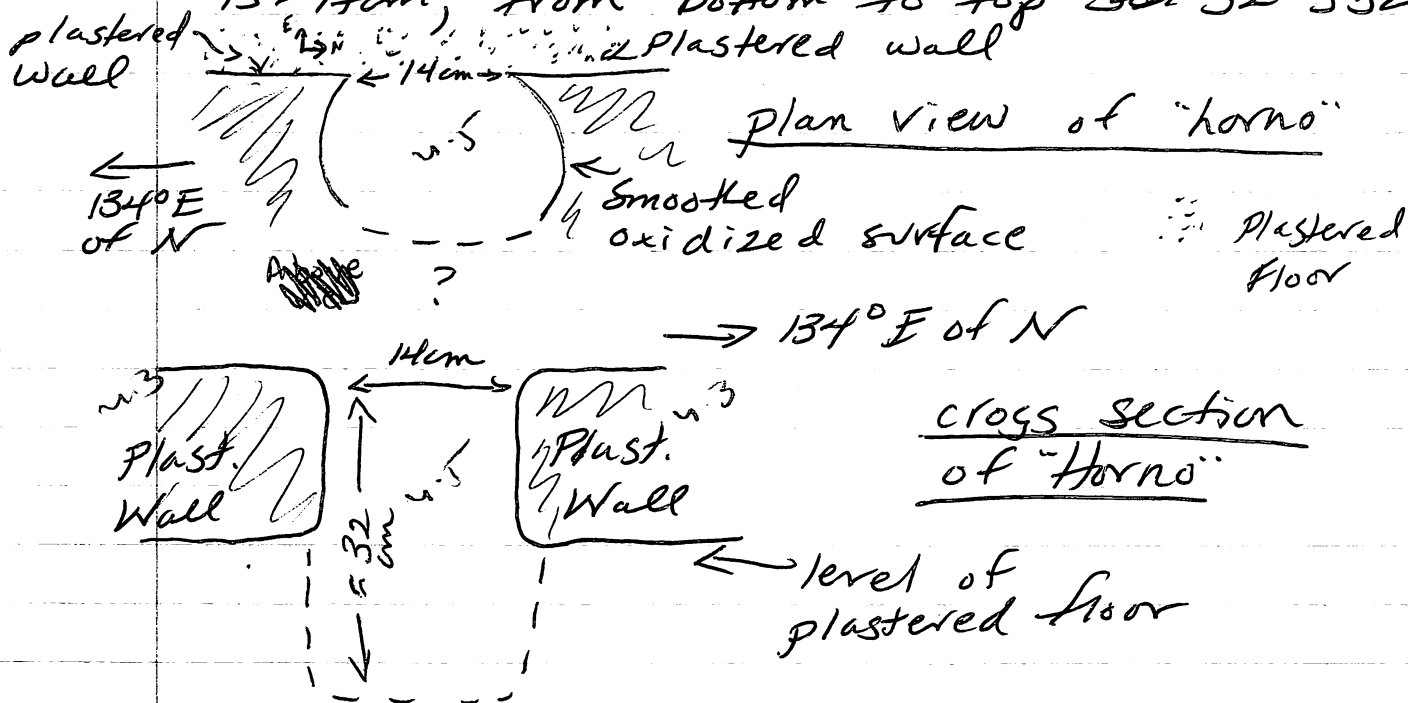 13-14cm, from bottom to top
plastered
wall
Plastered wall
14cm
plan view of "horno"
u.5
134°E
of N
Smoothed
oxidized surface
Plastered
Floor
?
134° E of N
14cm
u.3
u.3
Plast.
Wall
u.5
≈ 32
cm
Plast.
Wall
cross section
of "Horno"
level of
plastered floor